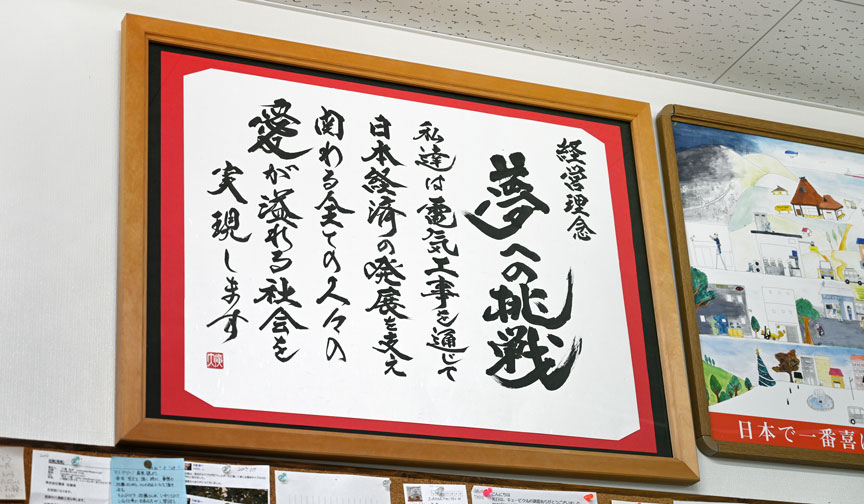 経営理念
夢への挑戦
私達は電気工事を通じて
日本経済の発展を支え
関わる全ての人々の
愛が溢れる社会を
実現します
日本で一番喜